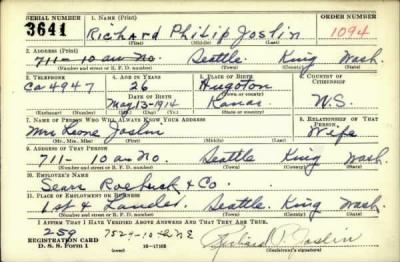 SERIAL NUMBER 1. NAME (Print) ORDER NUMBER
3641 Richard Philip Joslin 1094
(First) (Middle) (Last)
2. ADDRESS (Print)
711-10 av No. Seattle King Wash.
(Number and street or R. F. D. number) (Town) (County) (State)
3. TELEPHONE 4. AGE IN YEARS 5. PLACE OF BIRTH 6. COUNTRY OF CITIZENSHIP
Ca 4947 26 Hugoton
DATE OF BIRTH (Town or county)
May-13-1914 Kansas U.S.
(Exchange) (Number) (Mo.) (Day) (Yr.) (State or country)
7. NAME OF PERSON WHO WILL ALWAYS KNOW YOUR ADDRESS 8. RELATIONSHIP OF THAT PERSON
Mrs Leone Joslin Wife
(Mr., Mrs., Miss) (First) (Middle) (Last)
9. ADDRESS OF THAT PERSON
711-10 av No. Seattle King Wash.
(Number and street or R. F. D. number) (Town) (County) (State)
10. EMPLOYER'S NAME
Sears Roebuck & Co.
11. PLACE OF EMPLOYMENT OR BUSINESS
1st & Lander. Seattle. King Wash.
(Number and street or R. F. D. number) (Town) (County) (State)
I AFFIRM THAT I HAVE VERIFIED ABOVE ANSWERS AND THAT THEY ARE TRUE.
259 7529-10th NE
REGISTRATION CARD
D. S. S. Form 1 (over) 16-17105 (Registrant's signature)
Richard P. Joslin